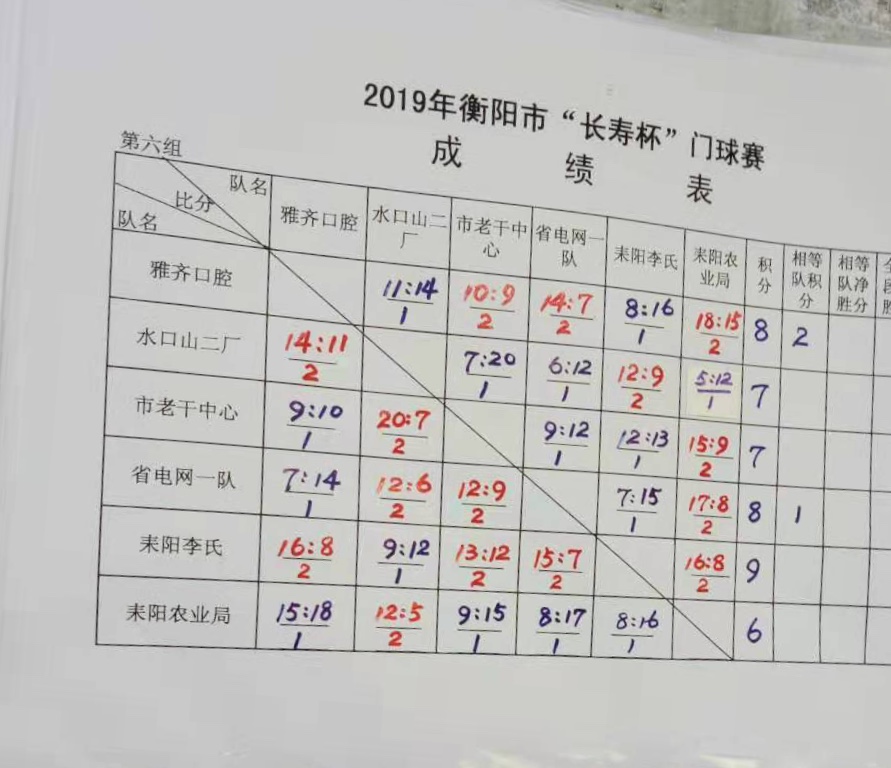 2019年衡阳市“长寿杯”门球赛
成绩表
第六组
队名
比分
队名
雅齐口腔 水口山二厂 市老干中心 省电网一队 耒阳李氏 耒阳农业局 积分 相等队积分 相等队净胜分
雅齐口腔 11:14/1 10:9/2 14:7/2 8:16/1 18:15/2 8 2
水口山二厂 14:11/2 7:20/1 6:12/1 12:9/2 5:12/1 7
市老干中心 9:10/1 20:7/2 9:12/1 12:13/1 15:9/2 7
省电网一队 7:14/1 12:6/2 12:9/2 7:15/1 17:8/2 8 1
耒阳李氏 16:8/2 9:12/1 13:12/2 15:7/2 16:8/2 9
耒阳农业局 15:18/1 12:5/2 9:15/1 8:17/1 8:16/1 6